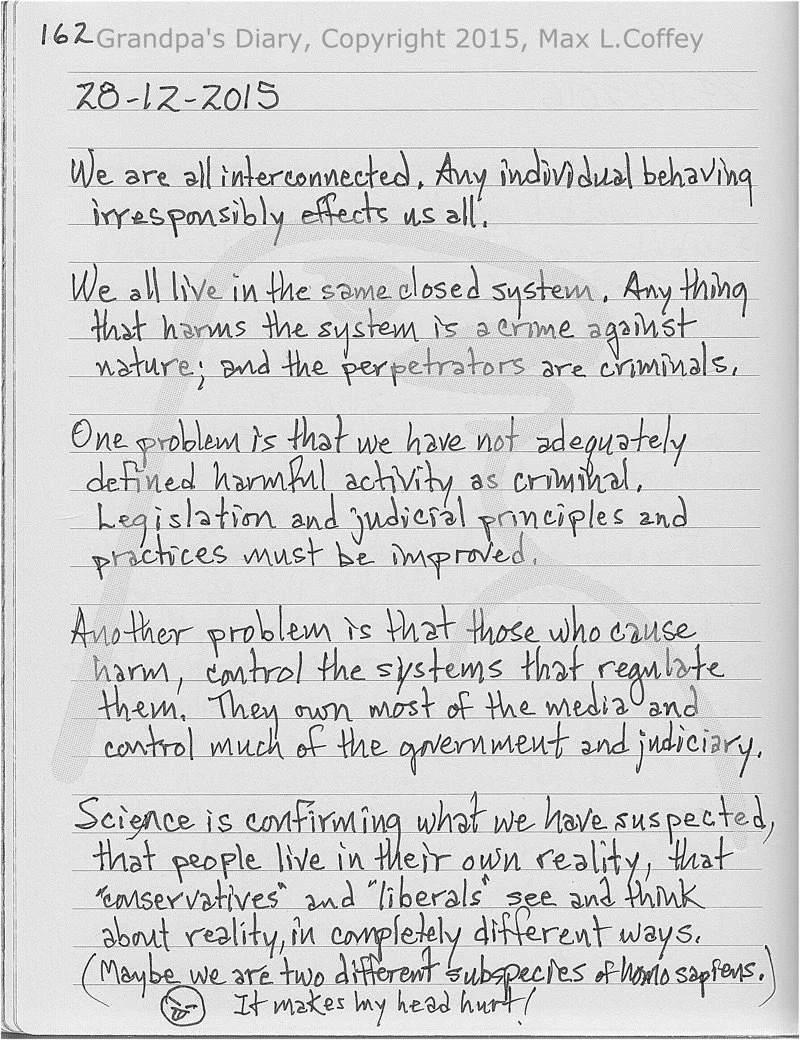 162 Grandpa's Diary, Copyright 2015, Max L.Coffey
28-12-2015
We are all interconnected. Any individual behaving
irresponsibly effects us all.
We all live in the same closed system. Any thing
that harms the system is a crime against
nature; and the perpetrators are criminals.
One problem is that we have not adequately
defined harmful activity as criminal.
Legislation and judicial principles and
practices must be improved.
Another problem is that those who cause
harm, control the systems that regulate
them. They own most of the media and
control much of the government and judiciary.
Science is confirming what we have suspected,
that people live in their own reality, that
"conservatives" and "liberals" see and think
about reality, in completely different ways.
(Maybe we are two different subspecies of homo sapiens.)
It makes my head hurt!